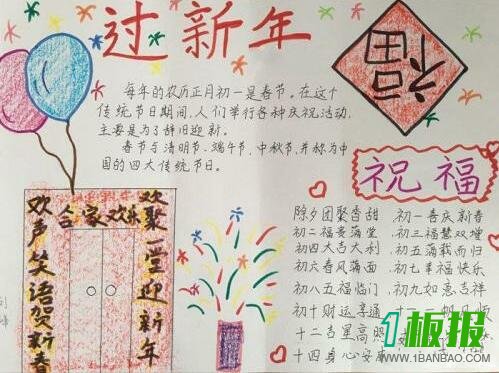 过新年
福
每年的农历正月初一是春节。在这个
传统节日期间,人们举行各种庆祝活动,
主要是为了辞旧迎新。
春节与清明节、端午节、中秋节,并称为中
国的四大传统节日。
合家欢乐
欢声笑语贺新春
欢聚一堂迎新年
祝福
除夕团聚香甜 初一喜庆新春
初二福贵满堂 初三福慧双增
初四大吉大利 初五满载而归
初六春风满面 初七幸福快乐
初八五福临门 初九如意吉祥
初十财运亨通 十一一帆
十二吉星高照
十四身心安
1板报
WWW.1BANBAO.COM